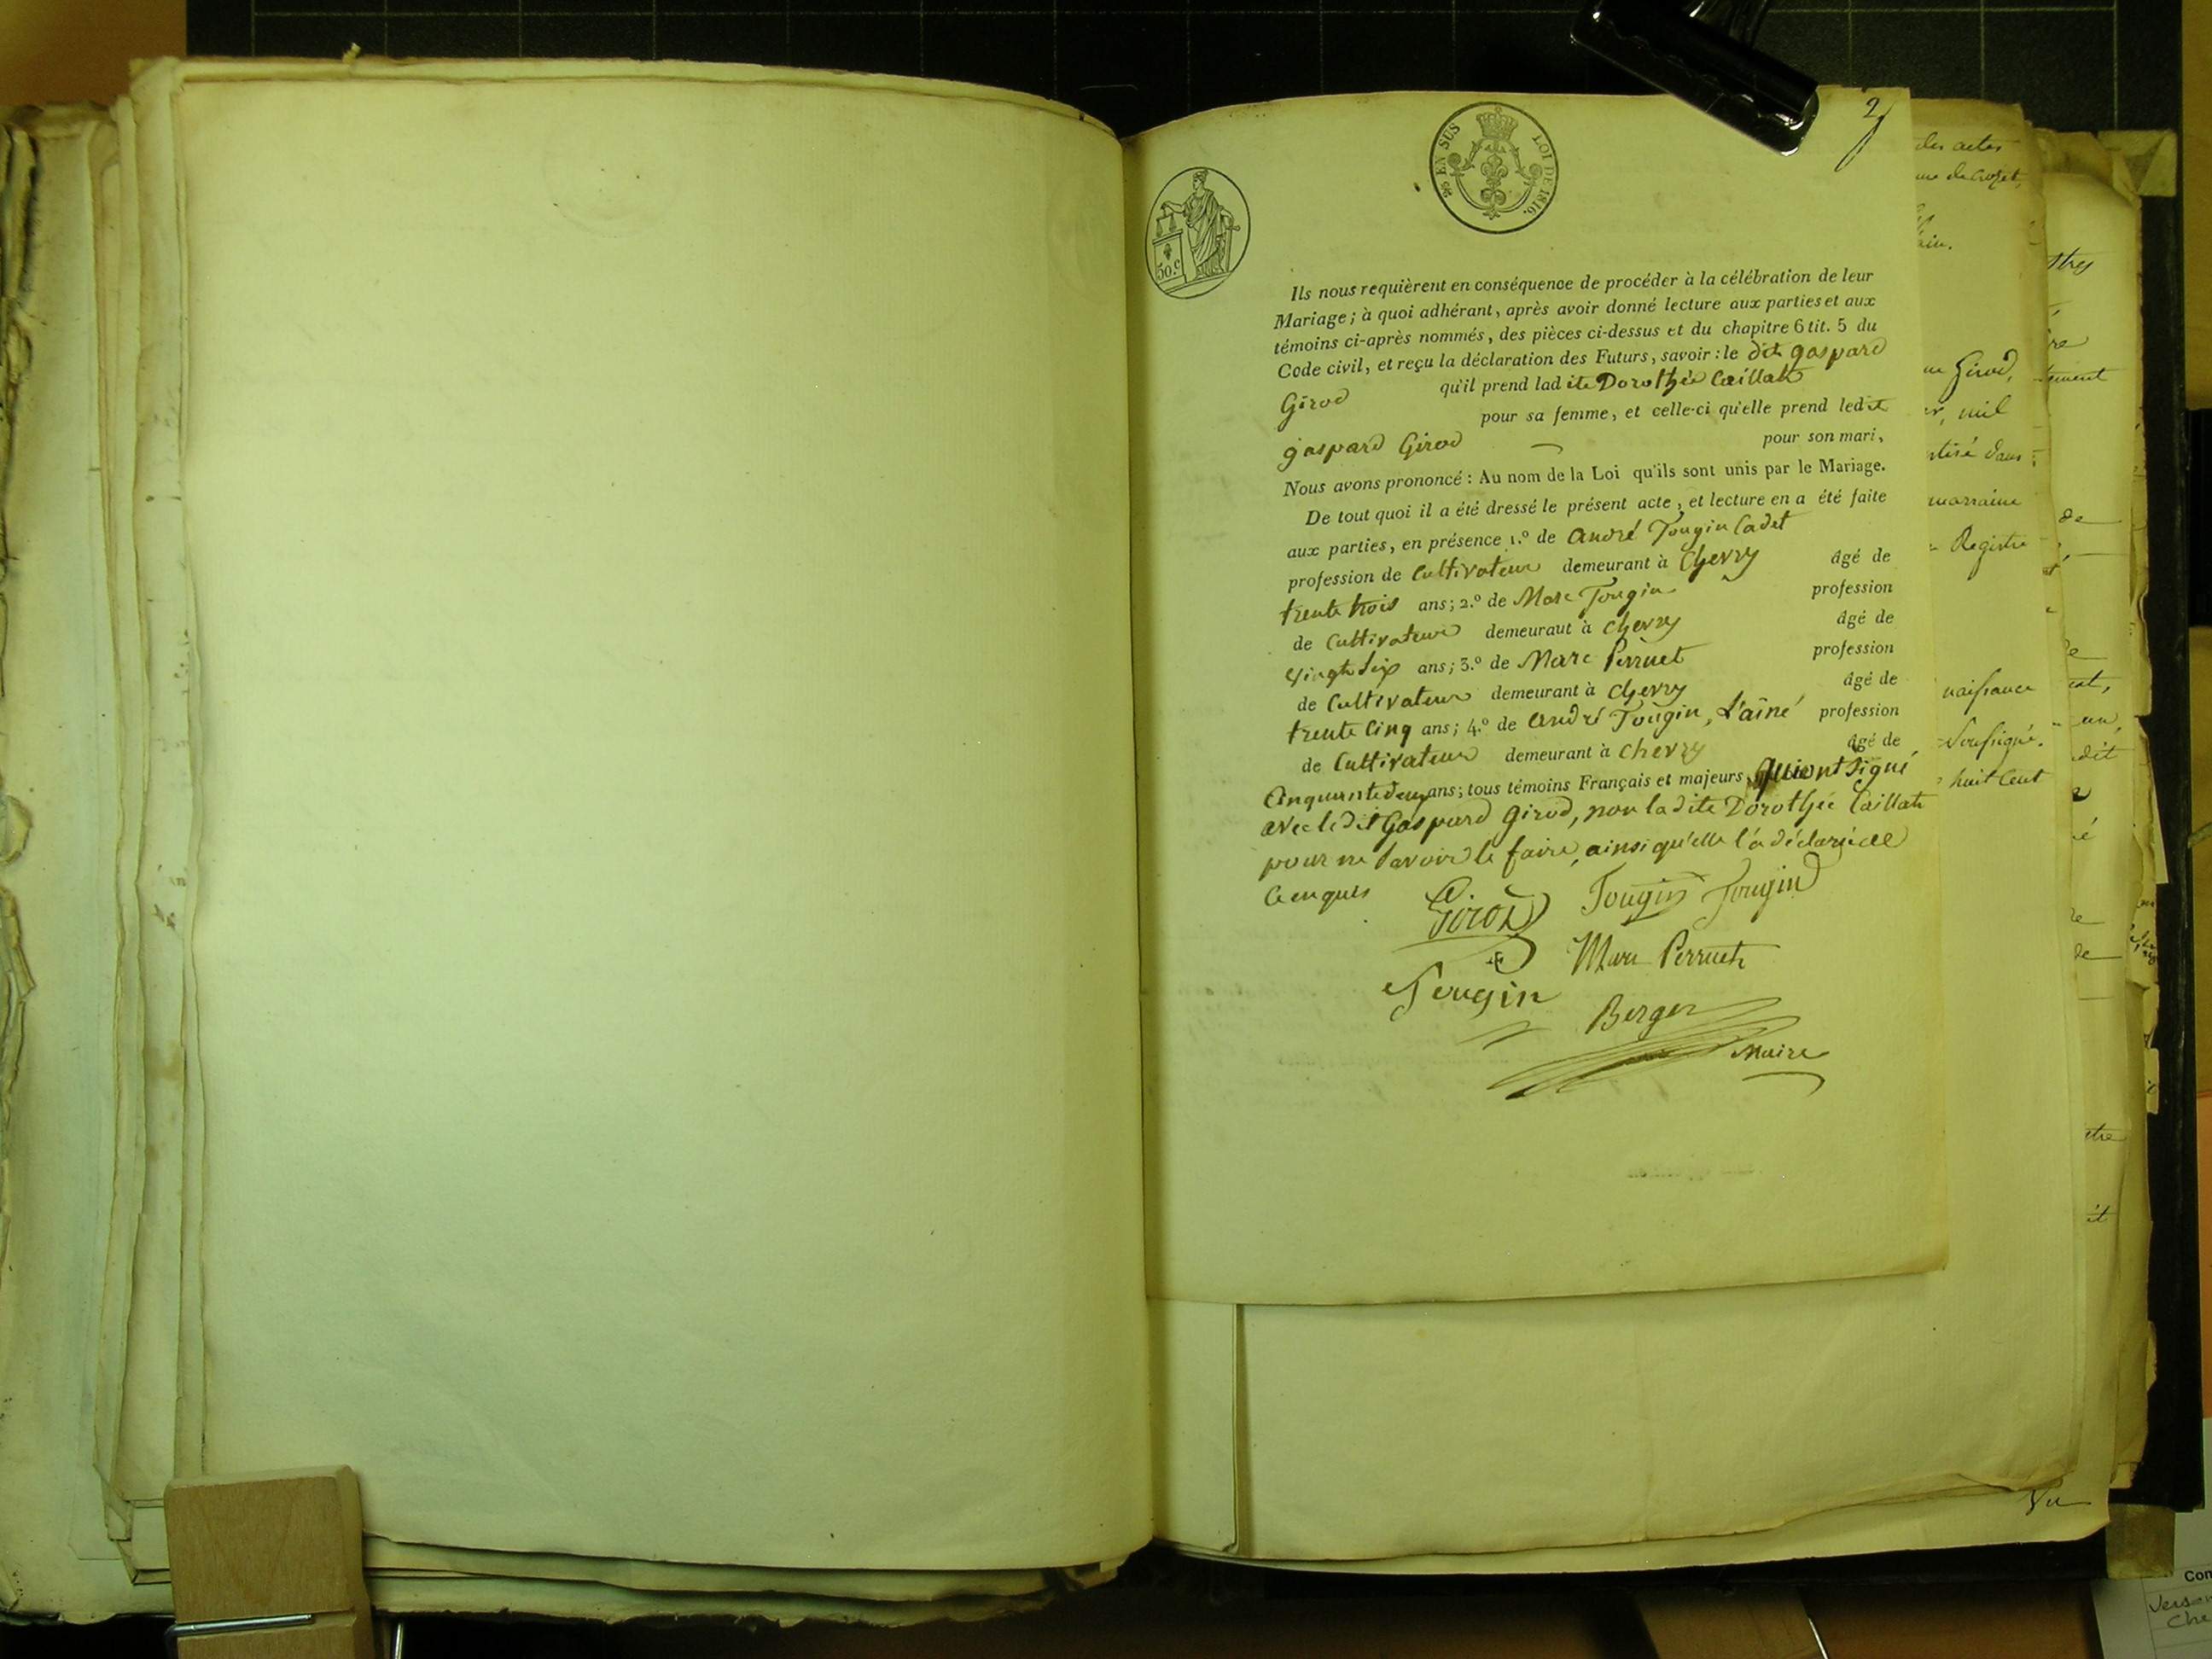 2
25 EN SUS
LOI DE 1816.
50 c.
Ils nous requièrent en conséquence de procéder à la célébration de leur
Mariage; à quoi adhérant, après avoir donné lecture aux parties et aux
témoins ci-après nommés, des pièces ci-dessus et du chapitre 6 tit. 5 du
Code civil, et reçu la déclaration des Futurs, savoir : le dit gaspard
Girod qu'il prend lad ite Dorothée Caillat
pour sa femme, et celle-ci qu'elle prend led it
gaspard Girod — pour son mari,
Nous avons prononcé : Au nom de la Loi qu'ils sont unis par le Mariage.
De tout quoi il a été dressé le présent acte, et lecture en a été faite
aux parties, en présence 1.º de André Tougin Cadet
profession de Cultivateur demeurant à Chevry âgé de
trente trois ans; 2.º de Marc Tougin profession
de Cultivateur demeuraut à Chevry âgé de
vingt six ans; 3.º de Marc Perruet profession
de Cultivateur demeurant à Chevry âgé de
trente Cinq ans; 4.º de André Tougin, L'aîné profession
de Cultivateur demeurant à Chevry âgé de
Cinquante deux ans; tous témoins Français et majeurs, qui ont signé
avec le dit Gaspard Girod, non la dite Dorothée Caillat
pour ne savoir le faire, ainsi qu'elle l'a déclaré de
Ce enquis
Girod Tougin Tougin
Marc Perruet
Tougin
Berger
Maire
des actes
Girod,
mil
marraine
Registre
naissance
Soussigné.
huit Cent
Vu